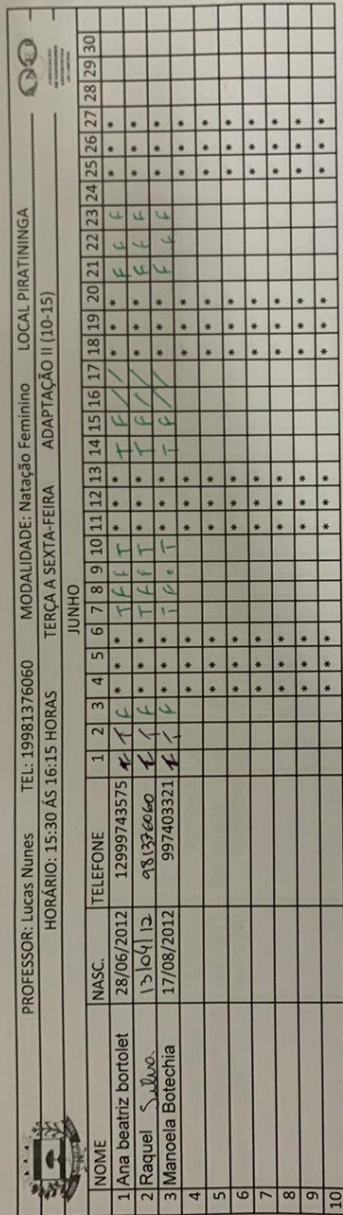 PROFESSOR: Lucas Nunes TEL: 19981376060 MODALIDADE: Natação Feminino LOCAL PIRATININGA
HORÁRIO: 15:30 ÁS 16:15 HORAS TERÇA A SEXTA-FEIRA ADAPTAÇÃO II (10-15)
JUNHO
NOME NASC. TELEFONE 1 2 3 4 5 6 7 8 9 10 11 12 13 14 15 16 17 18 19 20 21 22 23 24 25 26 27 28 29 30
1 Ana beatriz bortolet 28/06/2012 12999743575 F T F * * * T F F T * * * T F / / * * * F F F * * *
2 Raquel Silva 13/04/12 981376060 F T F * * * T F F T * * * T F / / * * * F F F * * *
3 Manoela Botechia 17/08/2012 997403321 F T F * * * T F • T * * * T F / / * * * F F F * * *
4 * * * * * * * * * * * *
5 * * * * * * * * * * * *
6 * * * * * * * * * * * *
7 * * * * * * * * * * * *
8 * * * * * * * * * * * *
9 * * * * * * * * * * * *
10 * * * * * * * * *